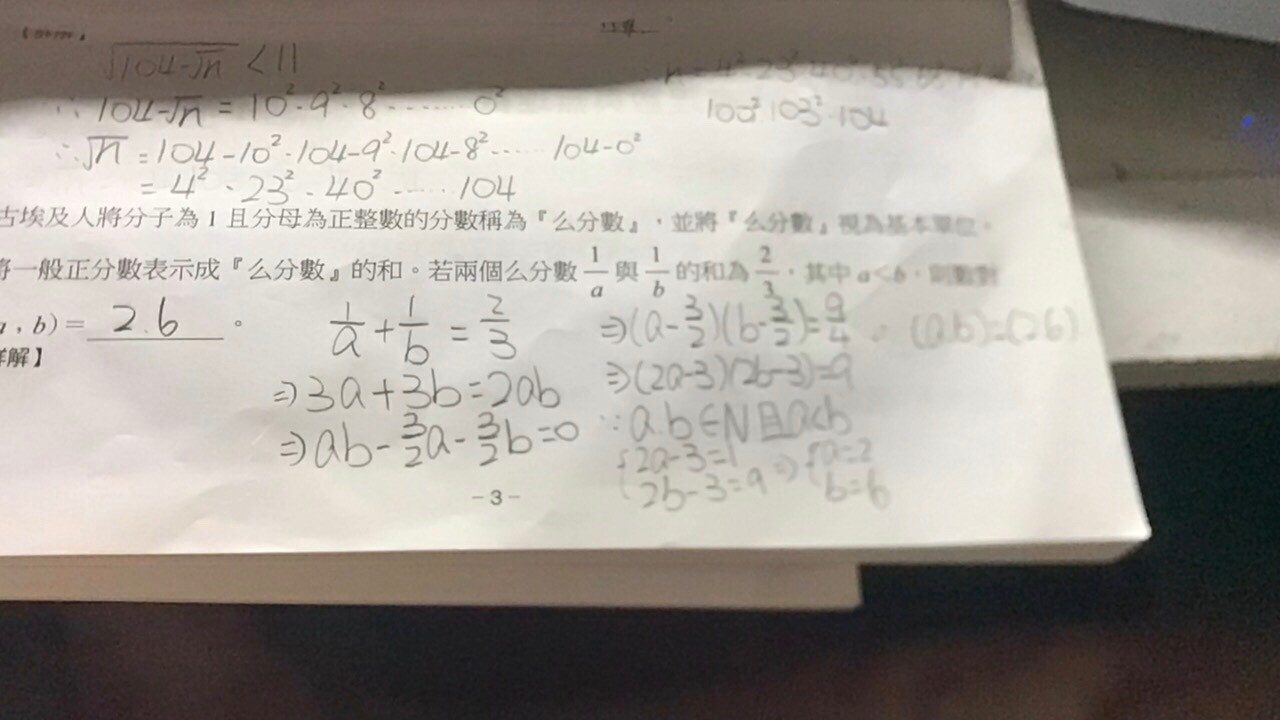 √(104-√n) < 11
∴ 104-√n = 10²、9²、8² ……… 0²
100² 103² 104
∴ √n = 104-10²、104-9²、104-8² …… 104-0²
= 4²、23²、40² …… 104
古埃及人將分子為 1 且分母為正整數的分數稱為『么分數』，並將『么分數』視為基本單位，
將一般正分數表示成『么分數』的和。若兩個么分數 1/a 與 1/b 的和為 2/3，其中 a<b，則數對
a , b) = 2.6 。
詳解】
1/a + 1/b = 2/3
⇒ 3a+3b=2ab
⇒ ab - 3/2 a - 3/2 b = 0
⇒ (a - 3/2)(b - 3/2) = 9/4
(a.b)=(2.6)
⇒ (2a-3)(2b-3)=9
∵ a.b∈N且a<b
{2a-3=1 ⇒ {a=2
{2b-3=9 b=6
-3-